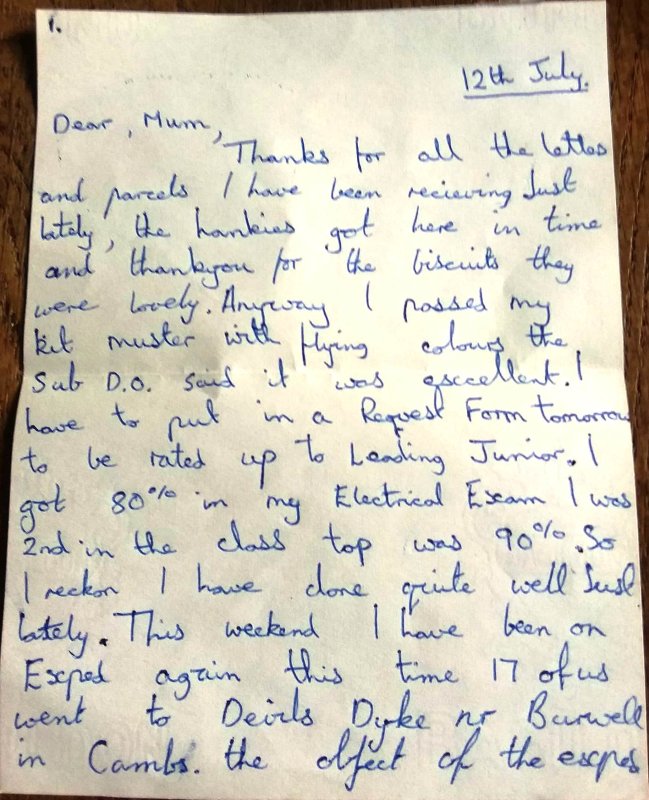 1.
12th July.
Dear, Mum,
Thanks for all the lettes
and parcels I have been recieving Just
lately, the hankies got here in time
and thankyou for the biscuits they
were lovely. Anyway I passed my
kit muster with flying colours the
Sub D.O. said it was exccellent. I
have to put in a Request Form tomorrow
to be rated up to Leading Junior. I
got 80% in my Electrical Exam I was
2nd in the class top was 90%. So
I reckon I have done quite well Just
lately. This weekend I have been on
Exped again this time 17 of us
went to Devils Dyke nr Burwell
in Cambs. the object of the exped